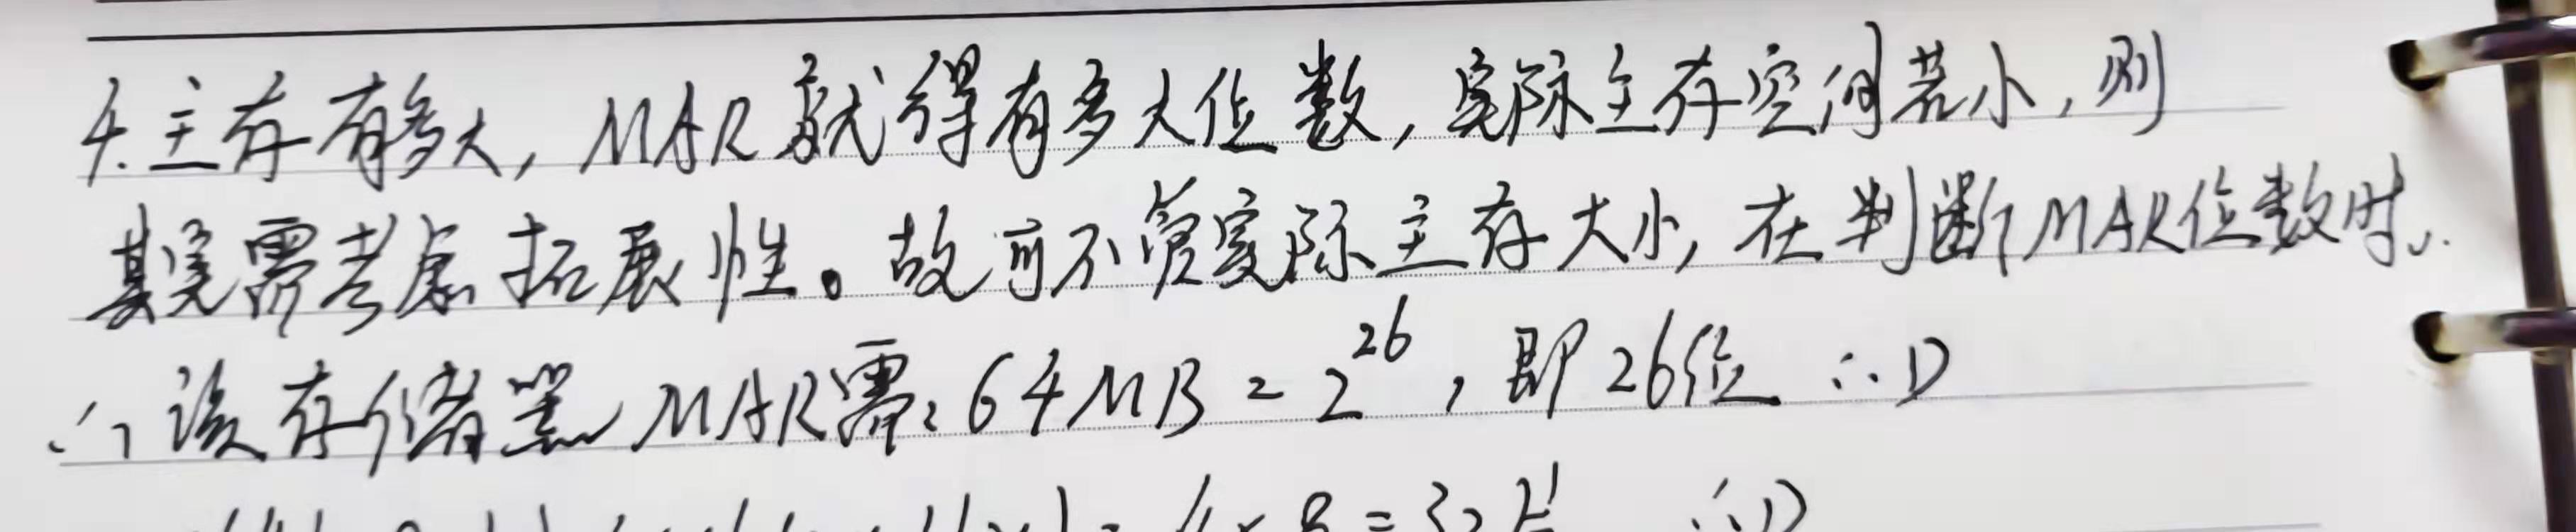 4.主存有多大，MAR就得有多大位数，实际主存空间若小，则
其实需考虑拓展性。故可不管实际主存大小，在判断MAR位数时、
∴该存储器MAR需：64MB=2^26，即26位 ∴D
=32片 ∴D